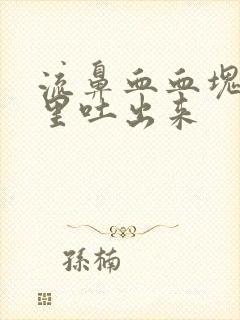 流鼻血血块
里吐出来
孙楠